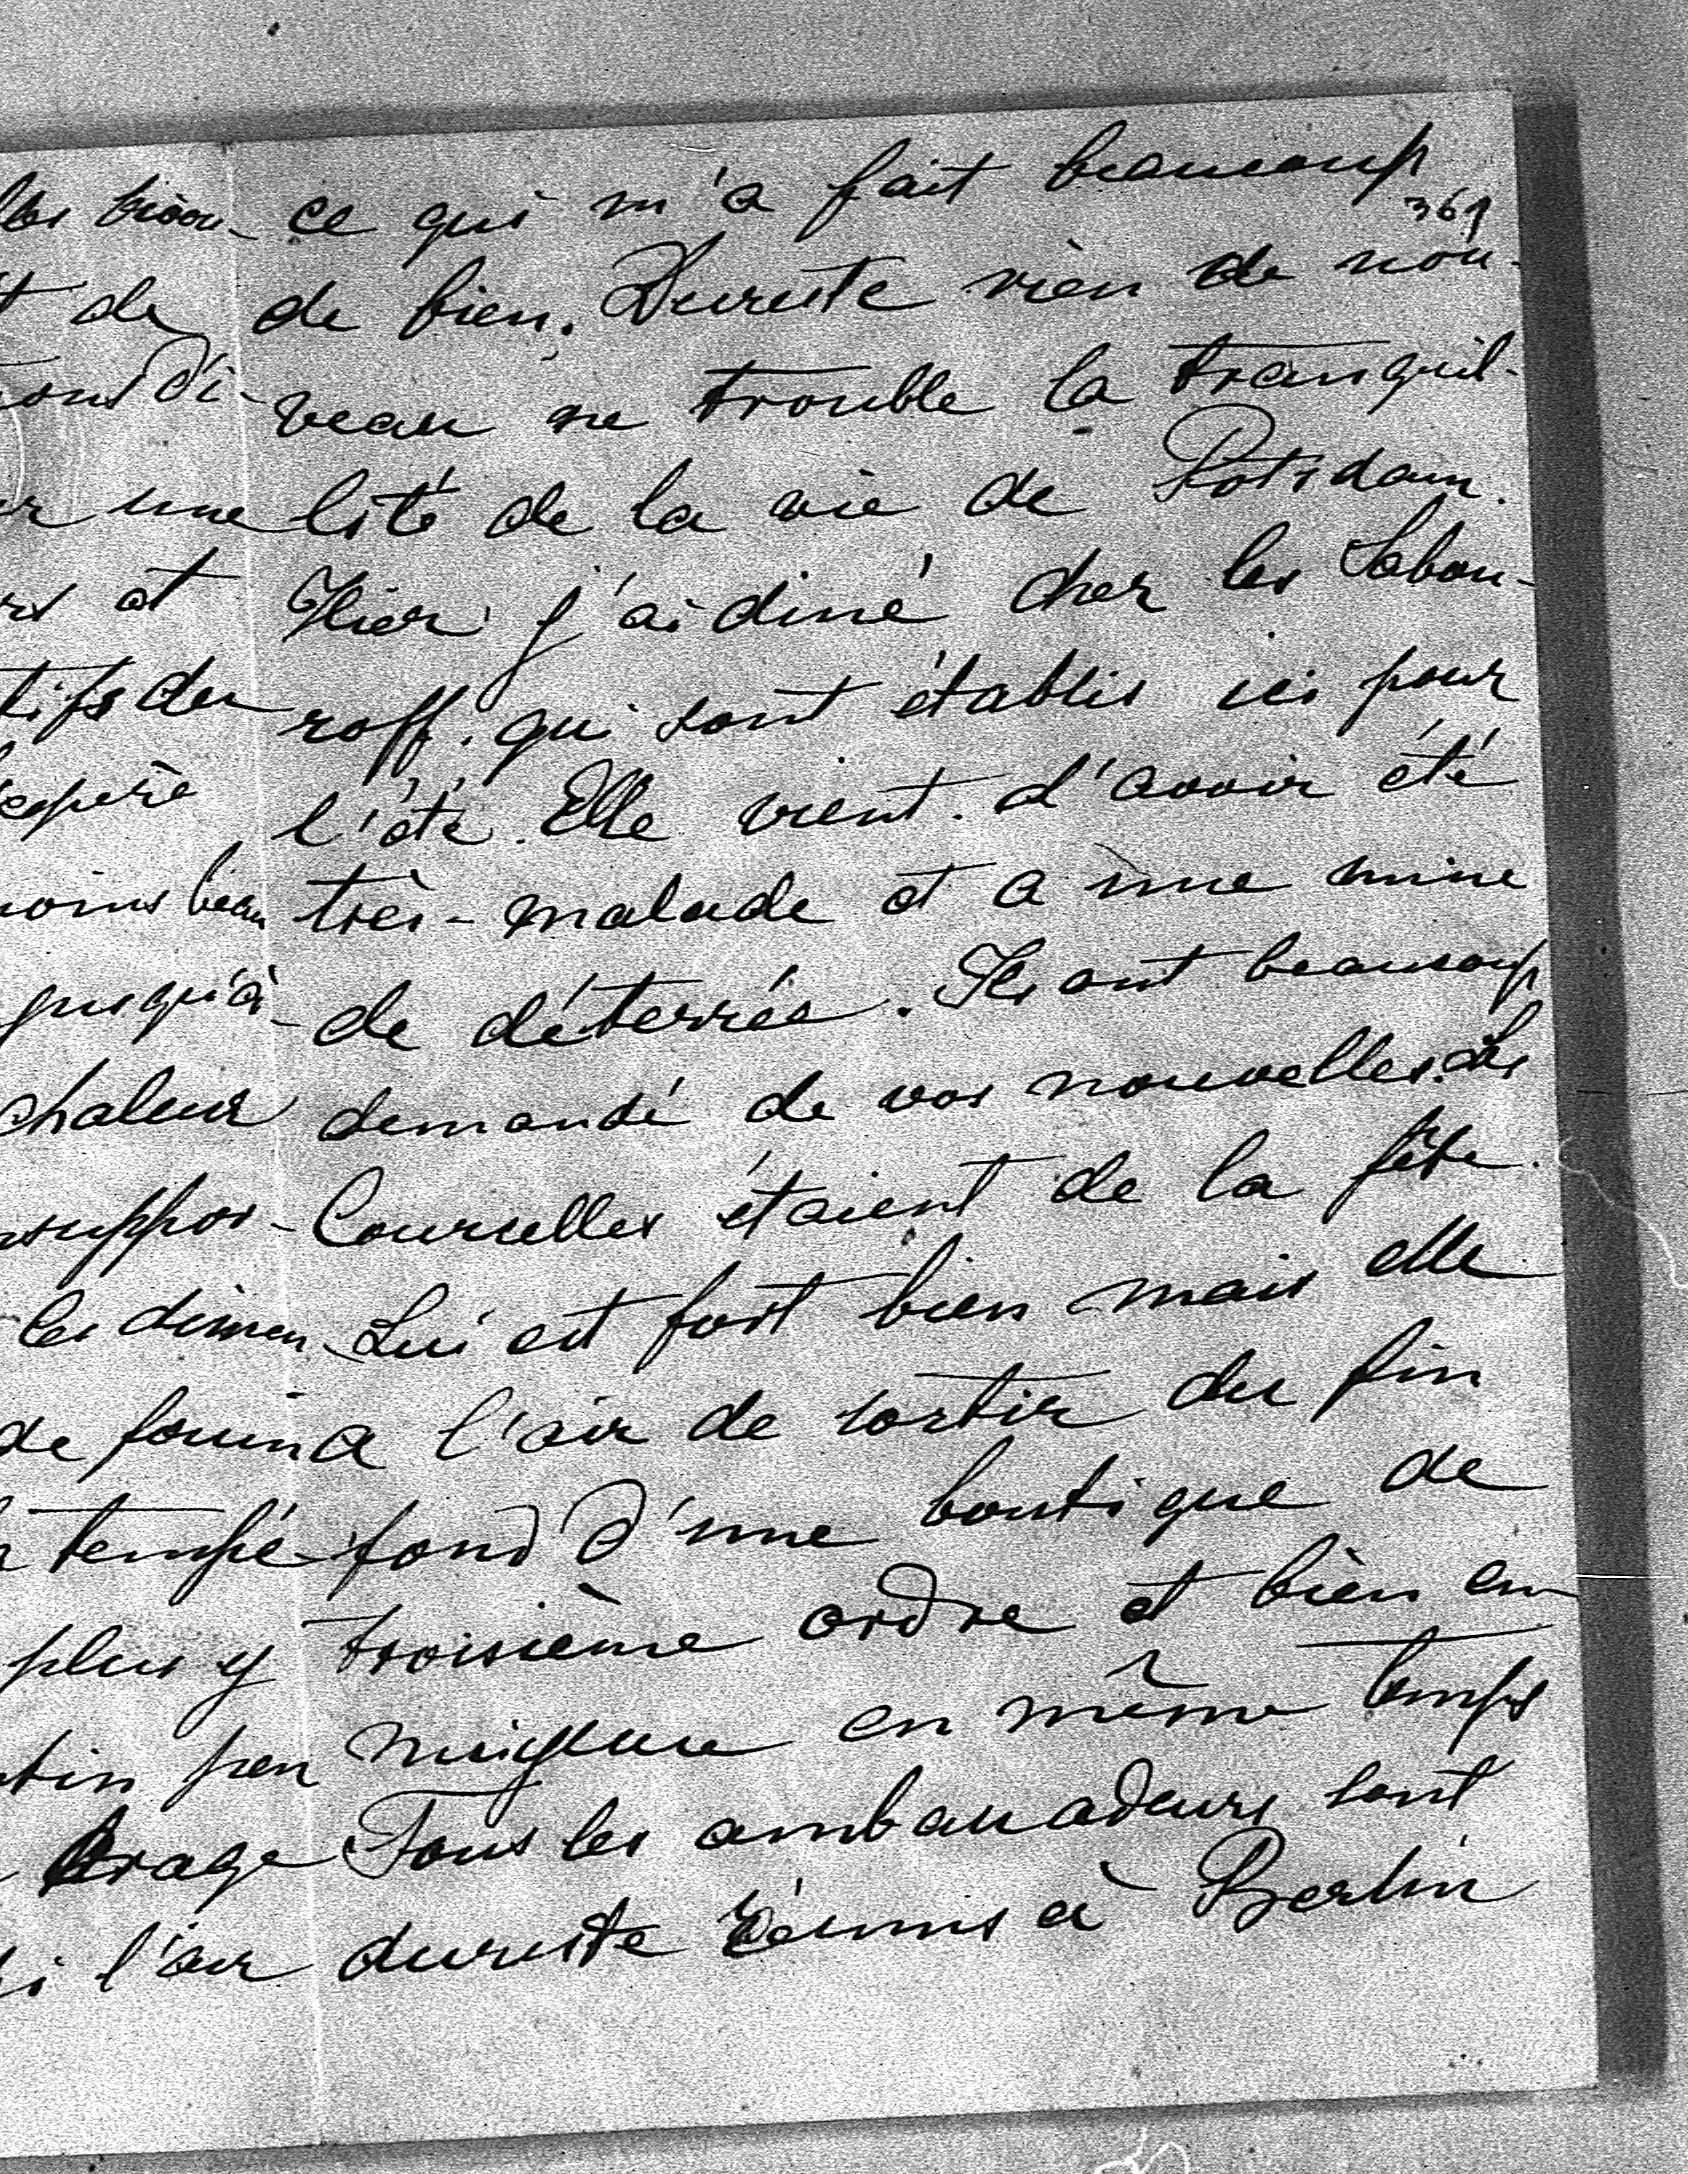 ce qui m'a fait beaucoup
361
de bien. Dureste rien de nou-
veau ne trouble la tranquil-
lité de la vie de Potsdam.
Hier j'ai diné chez les Sabou-
roff. qui sont établis ici pour
l'été. Elle vient d'avoir été
très-malade et a une mine
de déterrée. Ils ont beaucoup
demandé de vos nouvelles. Les
Courcelles étaient de la fête.
Lui est fort bien mais elle
a l'air de sortir du fin
fond d'une boutique de
troisième ordre et bien en-
nuigeuse en même temps
Tous les ambassadeurs sont
dureste réunis à Berlin
t de
une
et
tifs du
moins beau
jusqu'à
chaleur
suppor-
les dimen
de
tempé-
plus y
peu
Orage
l'air